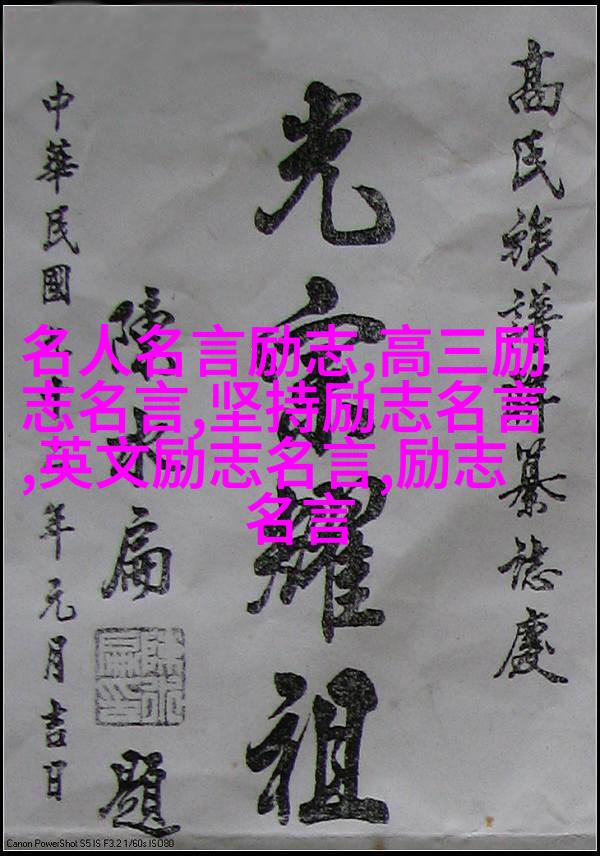 高氏族譜纂誌慶
光宗耀祖
陳水扁
題
中華民國
年元月吉日
名人名言励志,高三励
志名言,坚持励志名言
,英文励志名言,励志
名言
Canon PowerShot S5 IS F3.2 1/60s ISO80